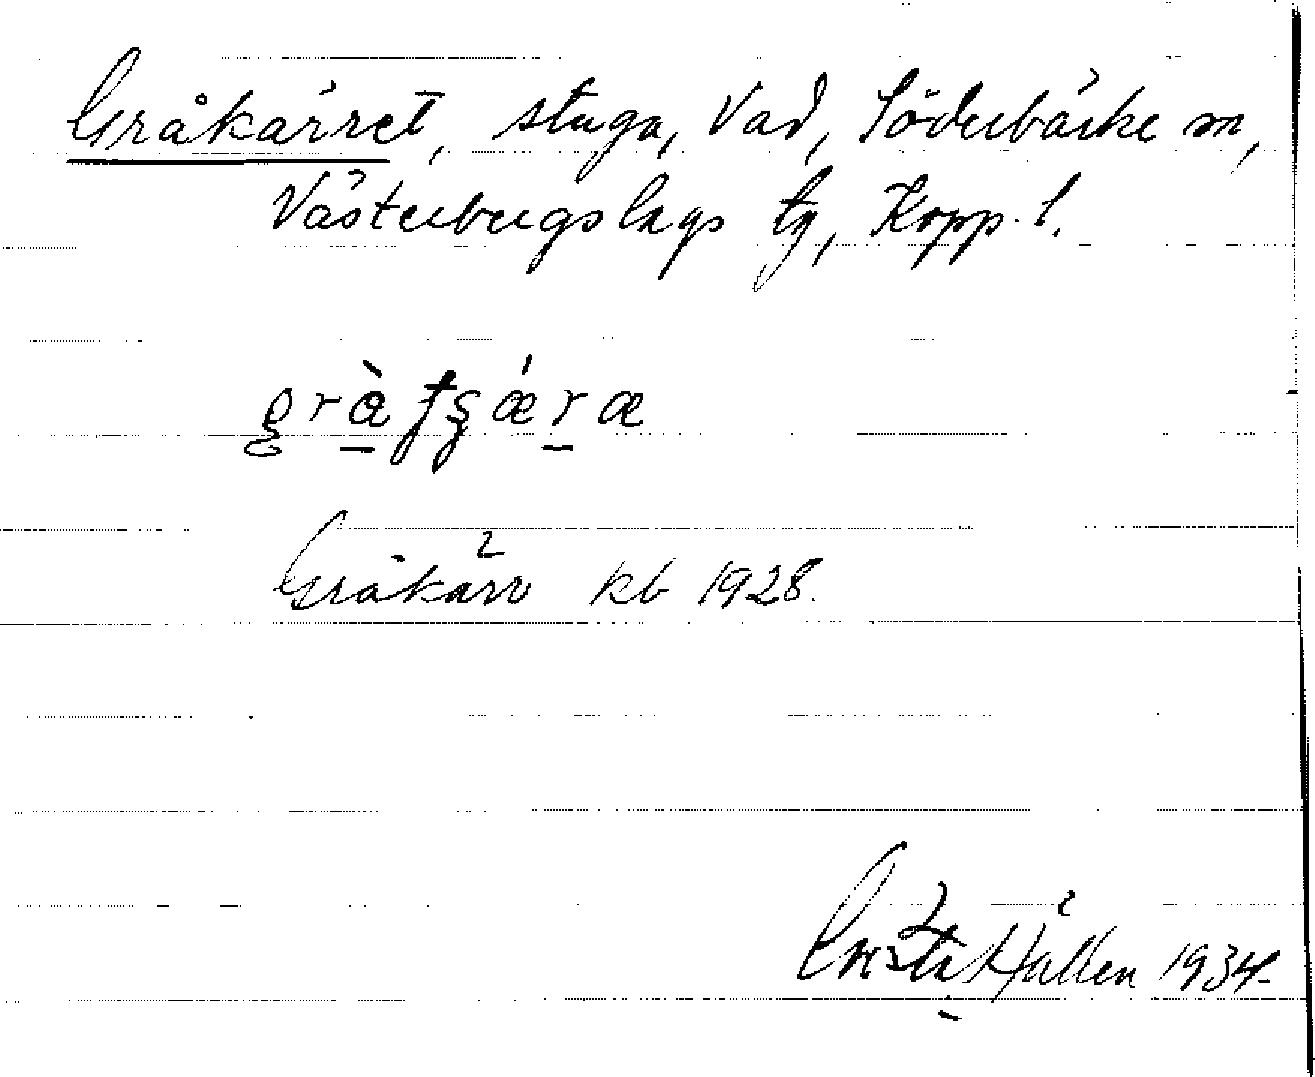 Gråkärret, stuga, Vad, Söderbärke sn,
Västerbergslags tg, Kopp. l.
Gråkärr kb 1928.
Hällen 1934